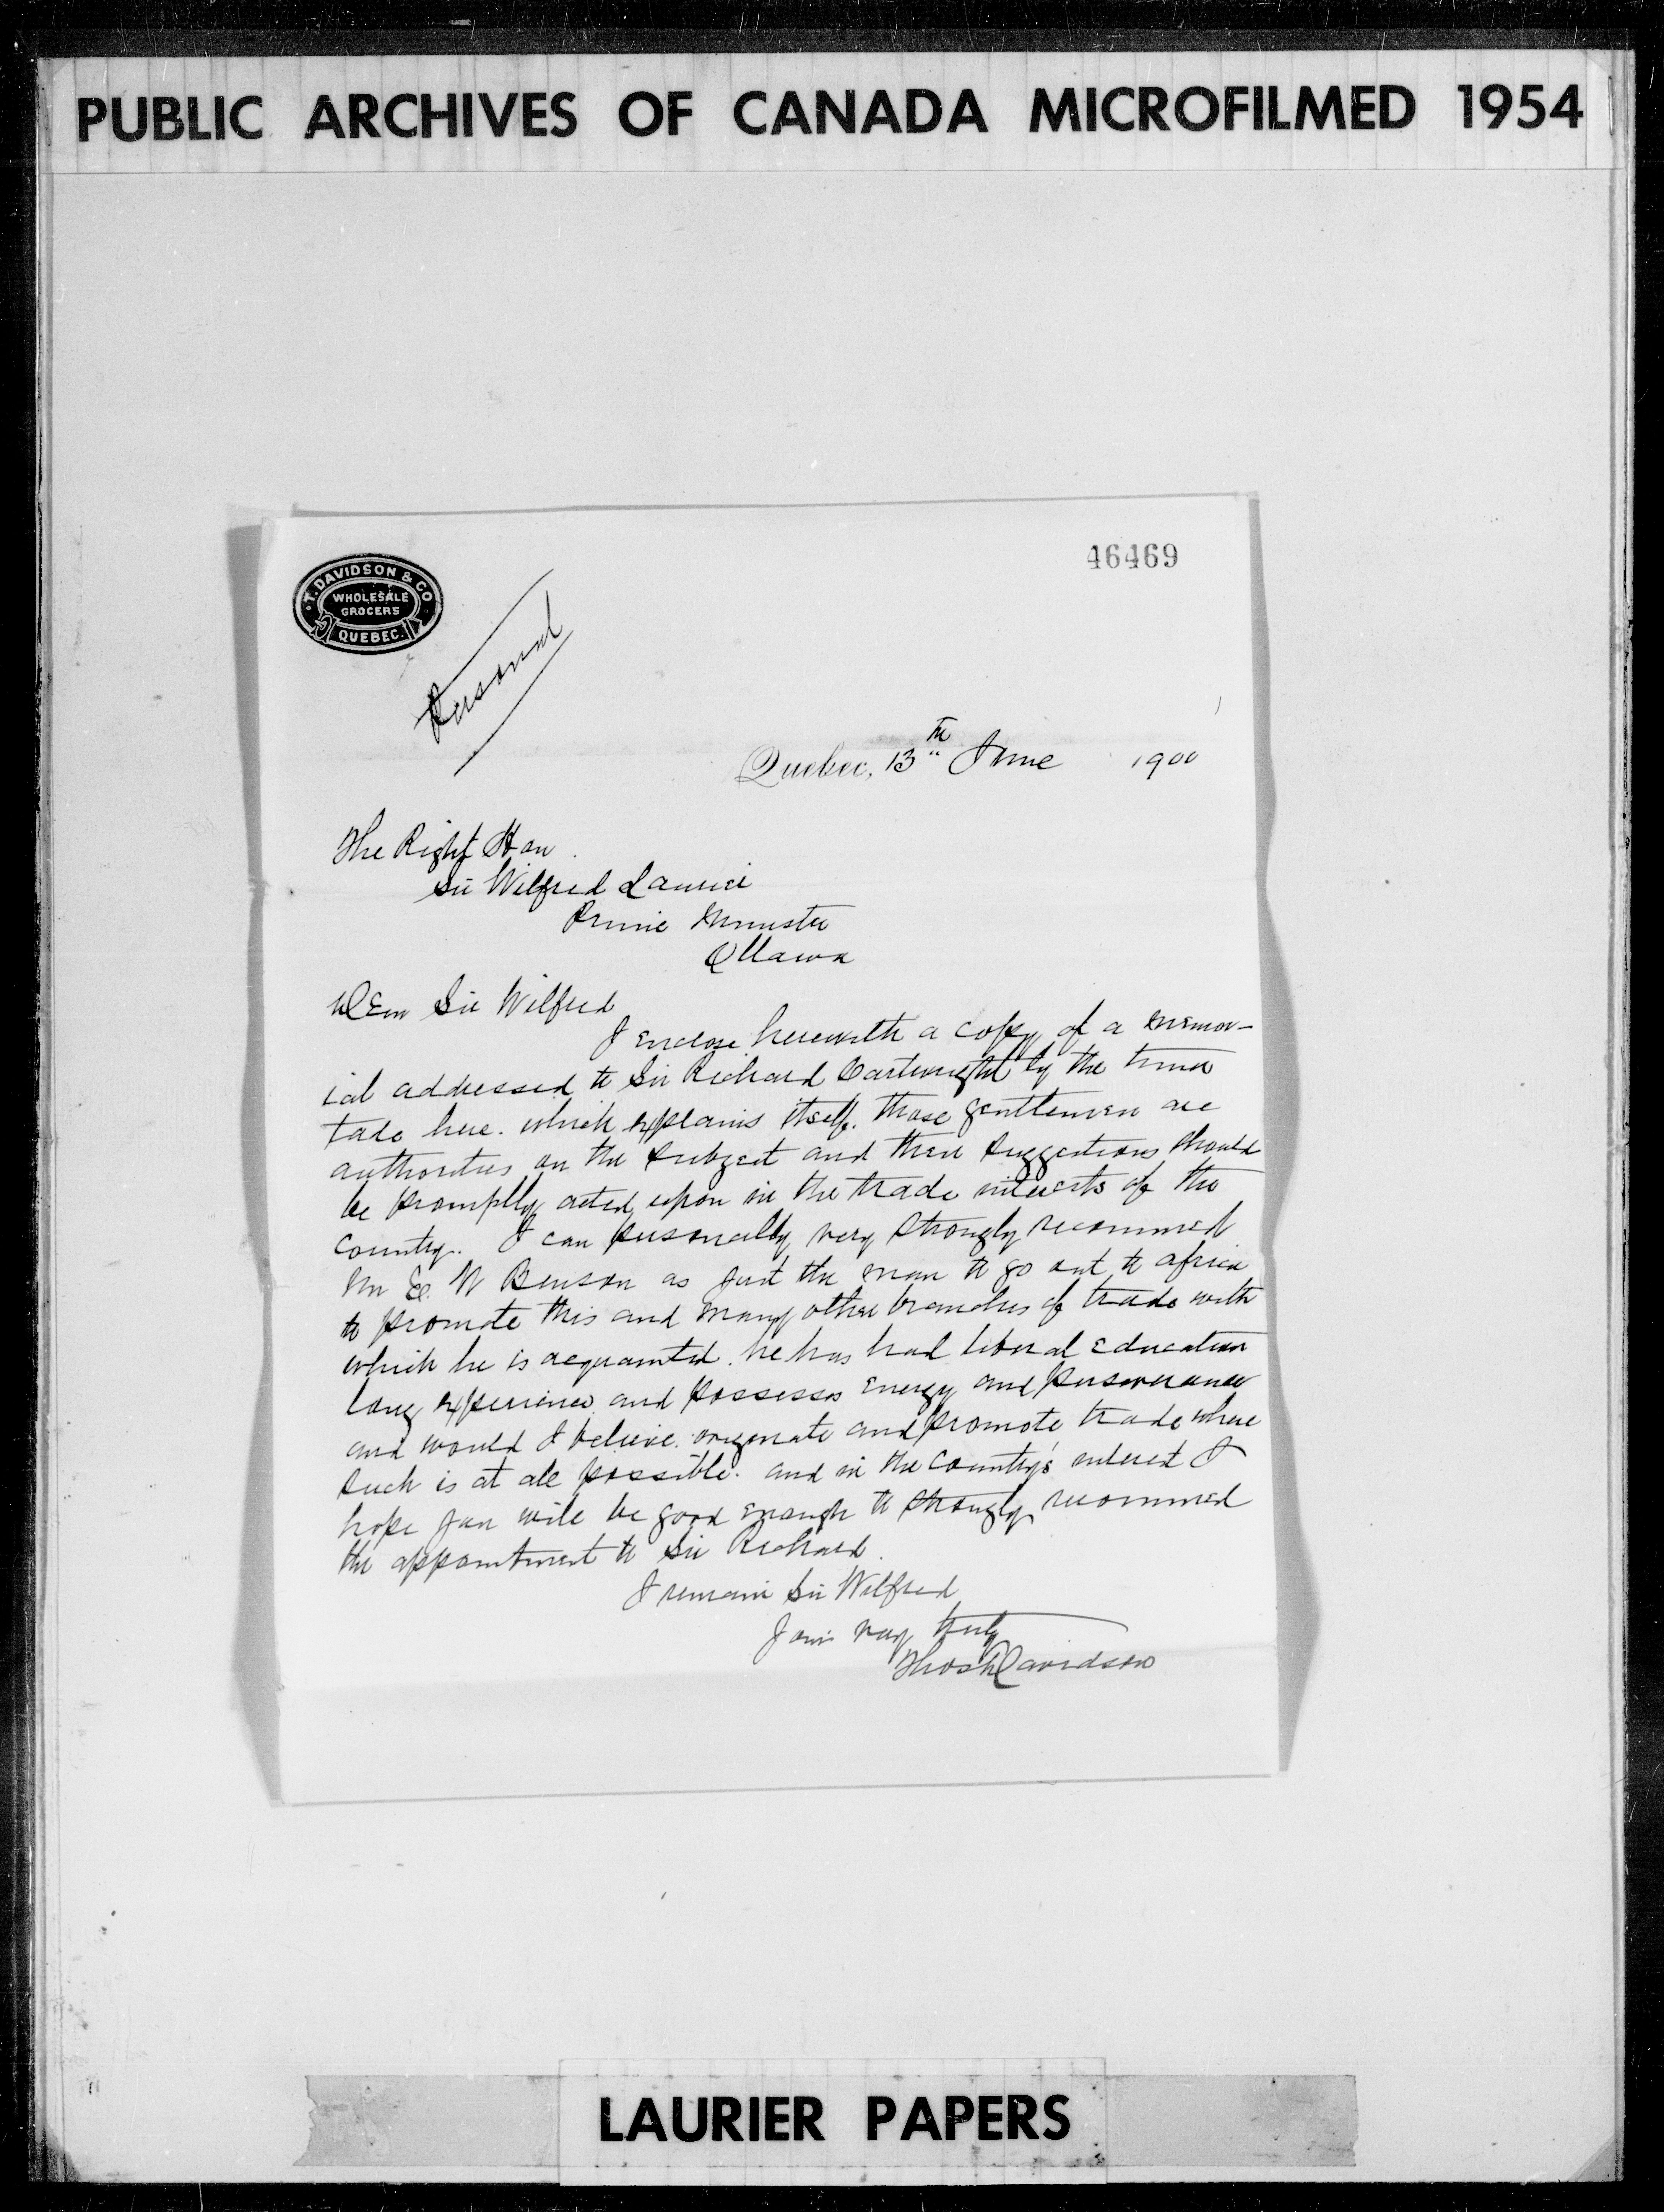 PUBLIC ARCHIVES OF CANADA MICROFILMED 1954
46469
T. DAVIDSON & CO
WHOLESALE
GROCERS
QUEBEC.
Personal
Quebec, 13th June 1900
The Right Hon
Sir Wilfred Laurier
Prime Minister
Ottawa
Dear Sir Wilfred
I enclose herewith a copy of a memor-
ial addressed to Sir Richard Cartwright by the
here. which explains itself. those gentlemen are
authorities on the subject and their suggestions should
be promptly acted upon in the trade interests of the
country. I can personally very strongly recommend
Mr W Benson as just the man to go out to africa
to promote this and many other branches of trade with
which he is acquainted. he has had liberal education
long experience and possesses energy and perseverance
and would I believe originate and promote trade where
such is at all possible. and in the country's interest I
hope you will be good enough to strongly recommend
the appointment to Sir Richard.
I remain Sir Wilfred
Yours very truly
Thos Davidson
LAURIER PAPERS